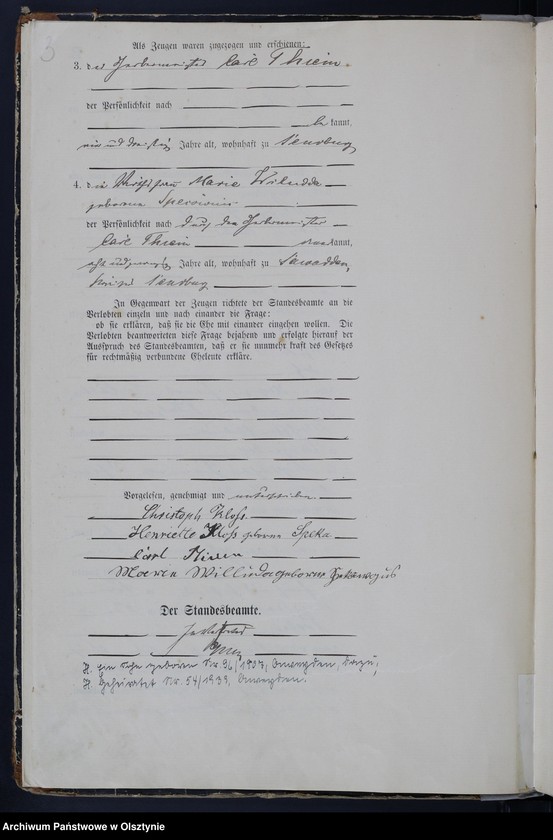 Als Zeugen waren zugezogen und erschienen:
3. der Gerbermeister Carl Thiem
der Persönlichkeit nach
bekannt,
ein und dreißig Jahre alt, wohnhaft zu Sensburg
4. die Marie
geborene
der Persönlichkeit nach durch den Gerbermeister
Carl Thiem anerkannt,
acht und zwanzig Jahre alt, wohnhaft zu
Kreises Sensburg
In Gegenwart der Zeugen richtete der Standesbeamte an die
Verlobten einzeln und nach einander die Frage:
ob sie erklären, daß sie die Ehe mit einander eingehen wollen. Die
Verlobten beantworteten diese Frage bejahend und erfolgte hierauf der
Ausspruch des Standesbeamten, daß er sie nunmehr kraft des Gesetzes
für rechtmäßig verbundene Eheleute erkläre.
Vorgelesen, genehmigt und unterschrieben
Christoph Kloß
Henriette Kloß geborne Speka
Carl Thiem
Marie geborne
Der Standesbeamte.
In Vertretung
geboren Nr. 96/1907,
Geheiratet Nr. 54/1933,
3
Archiwum Państwowe w Olsztynie